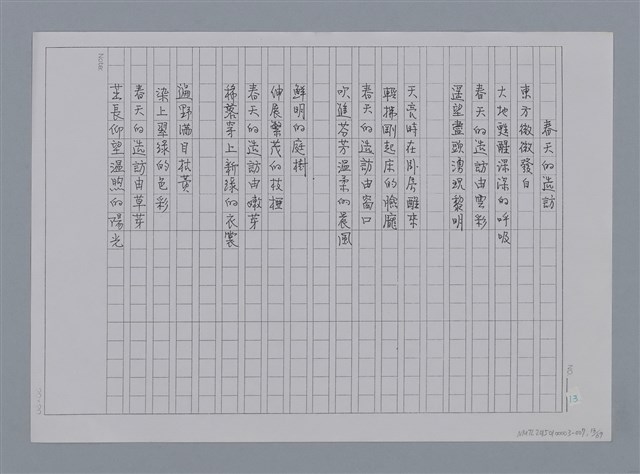 春天的造訪
東方微微發白
大地甦醒深深的呼吸
春天的造訪由雲彩
遠望盡頭湧現黎明
天亮時在卧房醒來
輕拂剛起床的臉龐
春天的造訪由窗口
吹進芬芳溫柔的晨風
鮮明的庭樹
伸展繁茂的枝椏
春天的造訪由嫩芽
梯落穿上新綠的衣裳
遍野滿目枯黃
染上翠綠的色彩
春天的造訪由草芽
茁長仰望溫煦的陽光
Note:
13